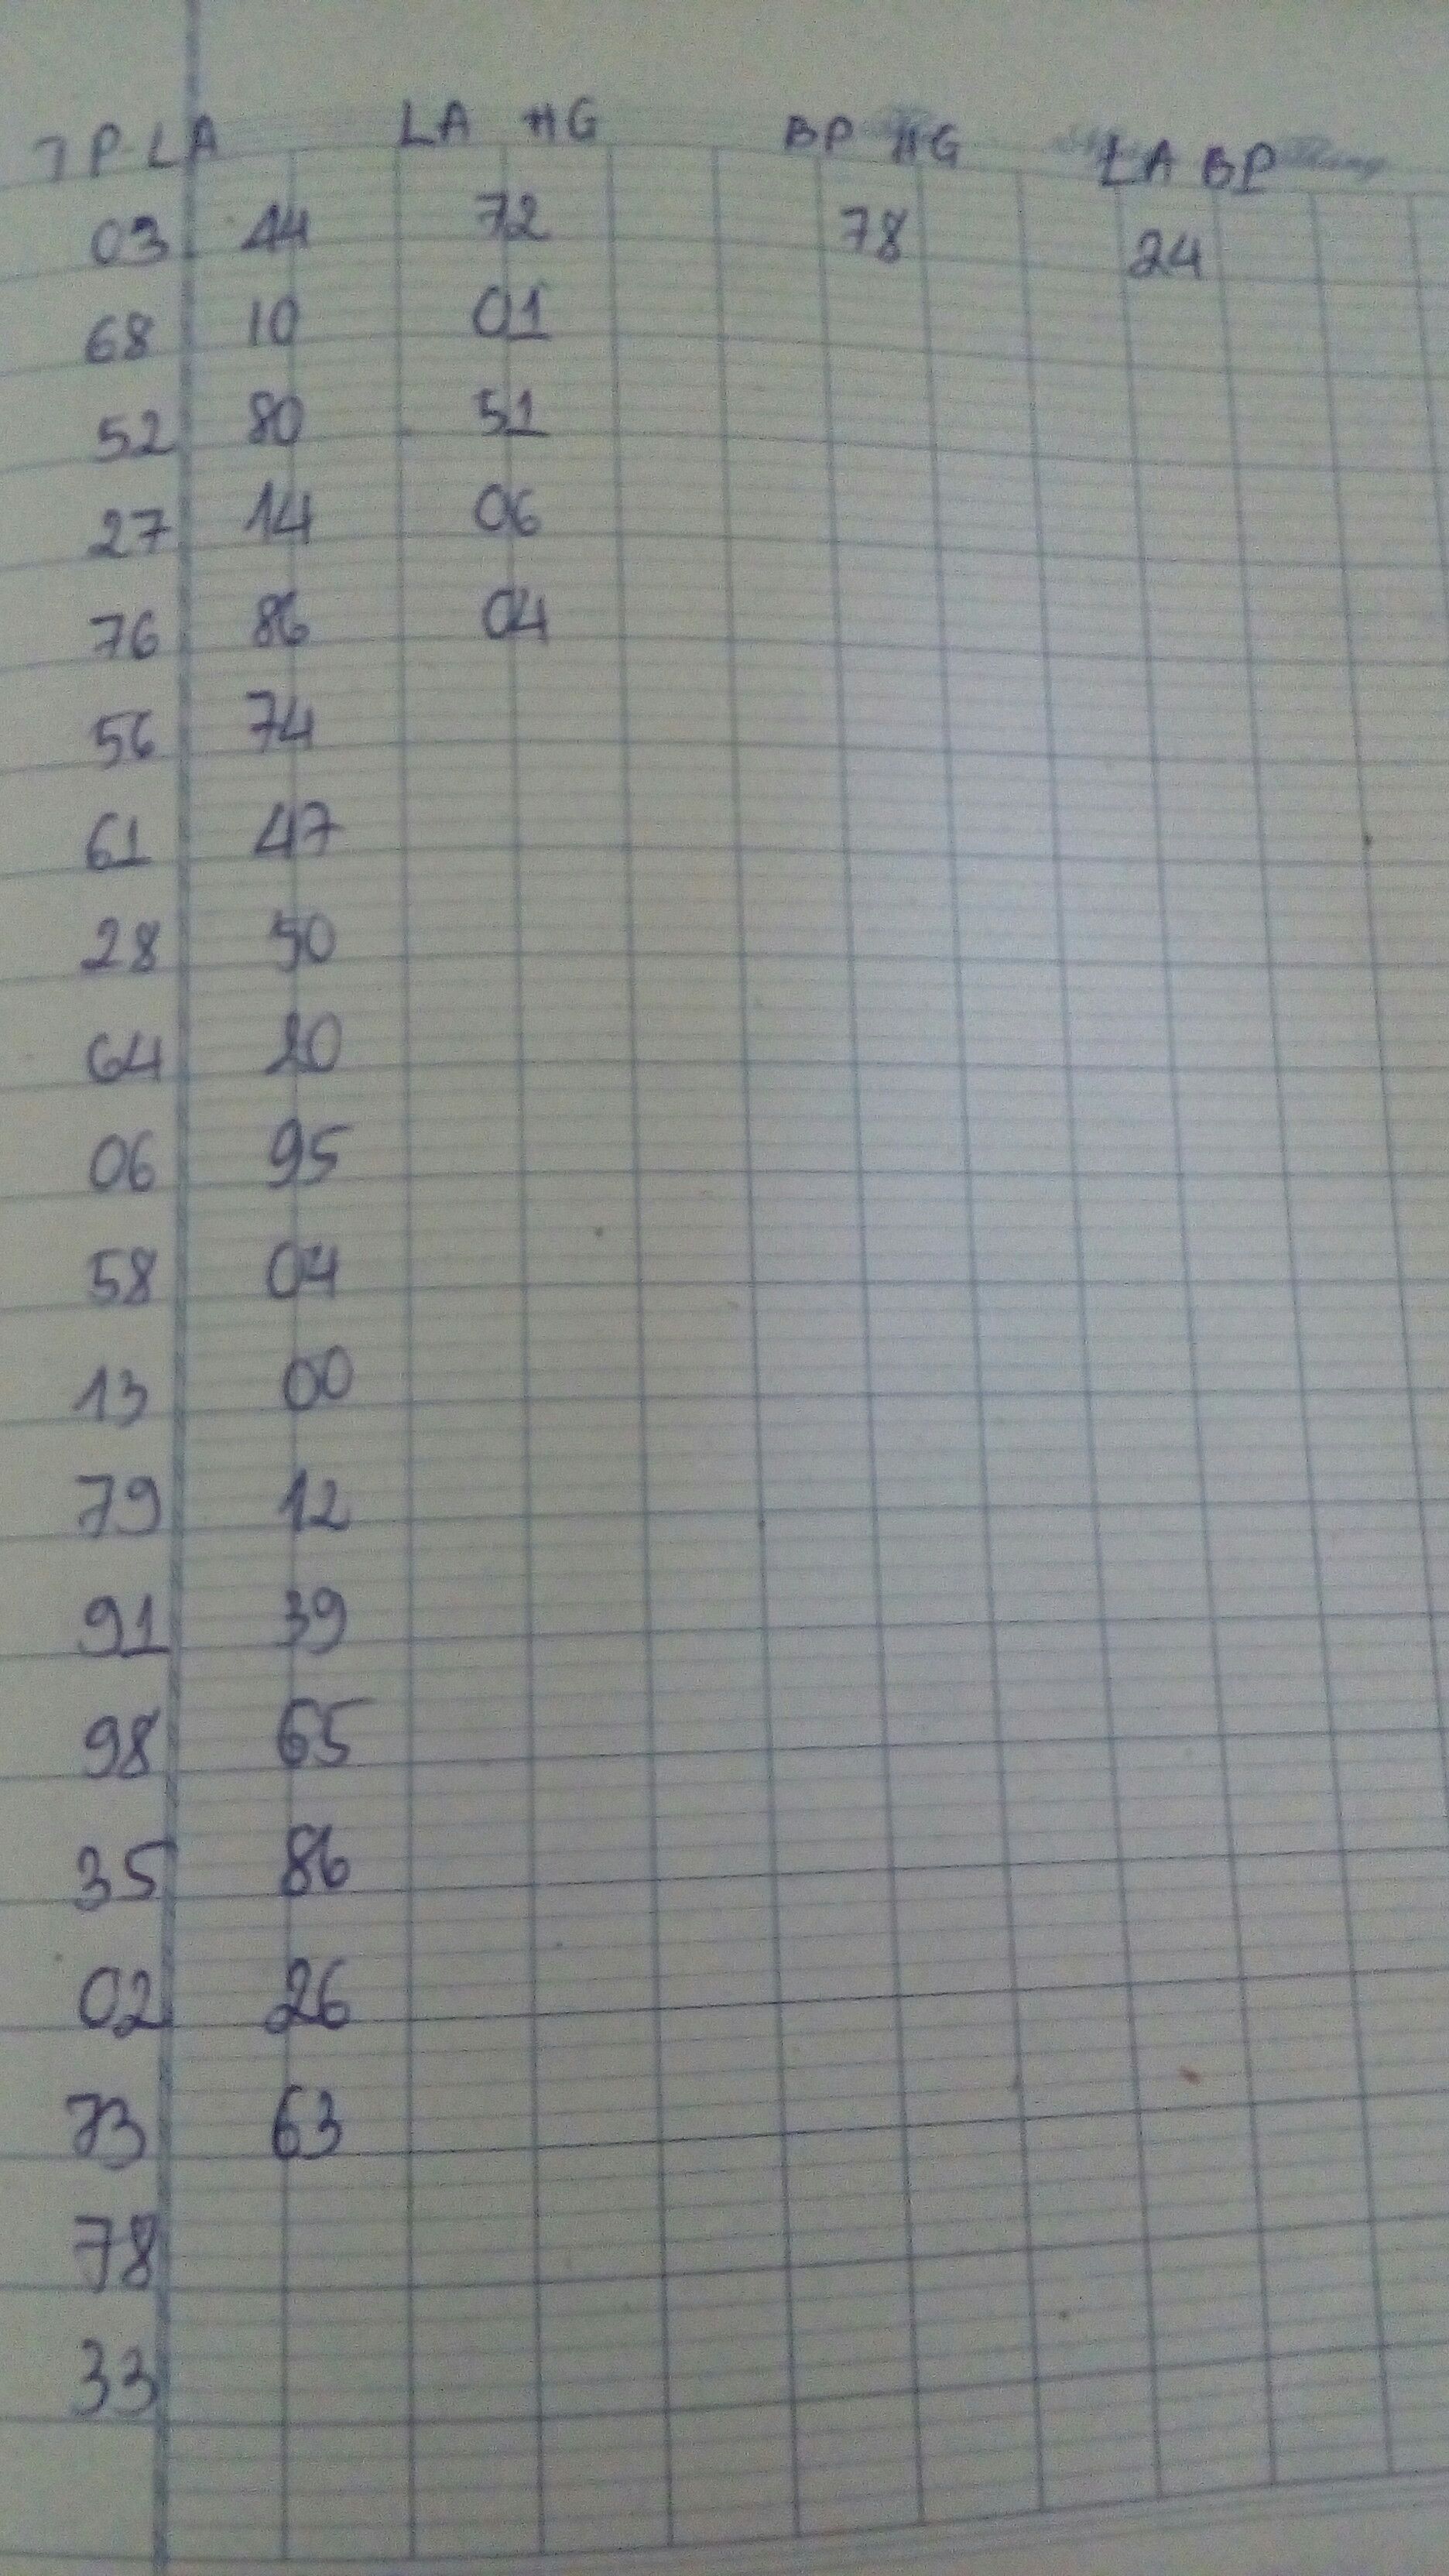 TP LA LA HG BP HG LA BP
03 44 72 78 24
68 10 01
52 80 51
27 14 06
76 86 04
56 74
61 47
28 50
64 20
06 95
58 04
13 00
79 12
91 39
98 65
35 86
02 26
73 63
78
33